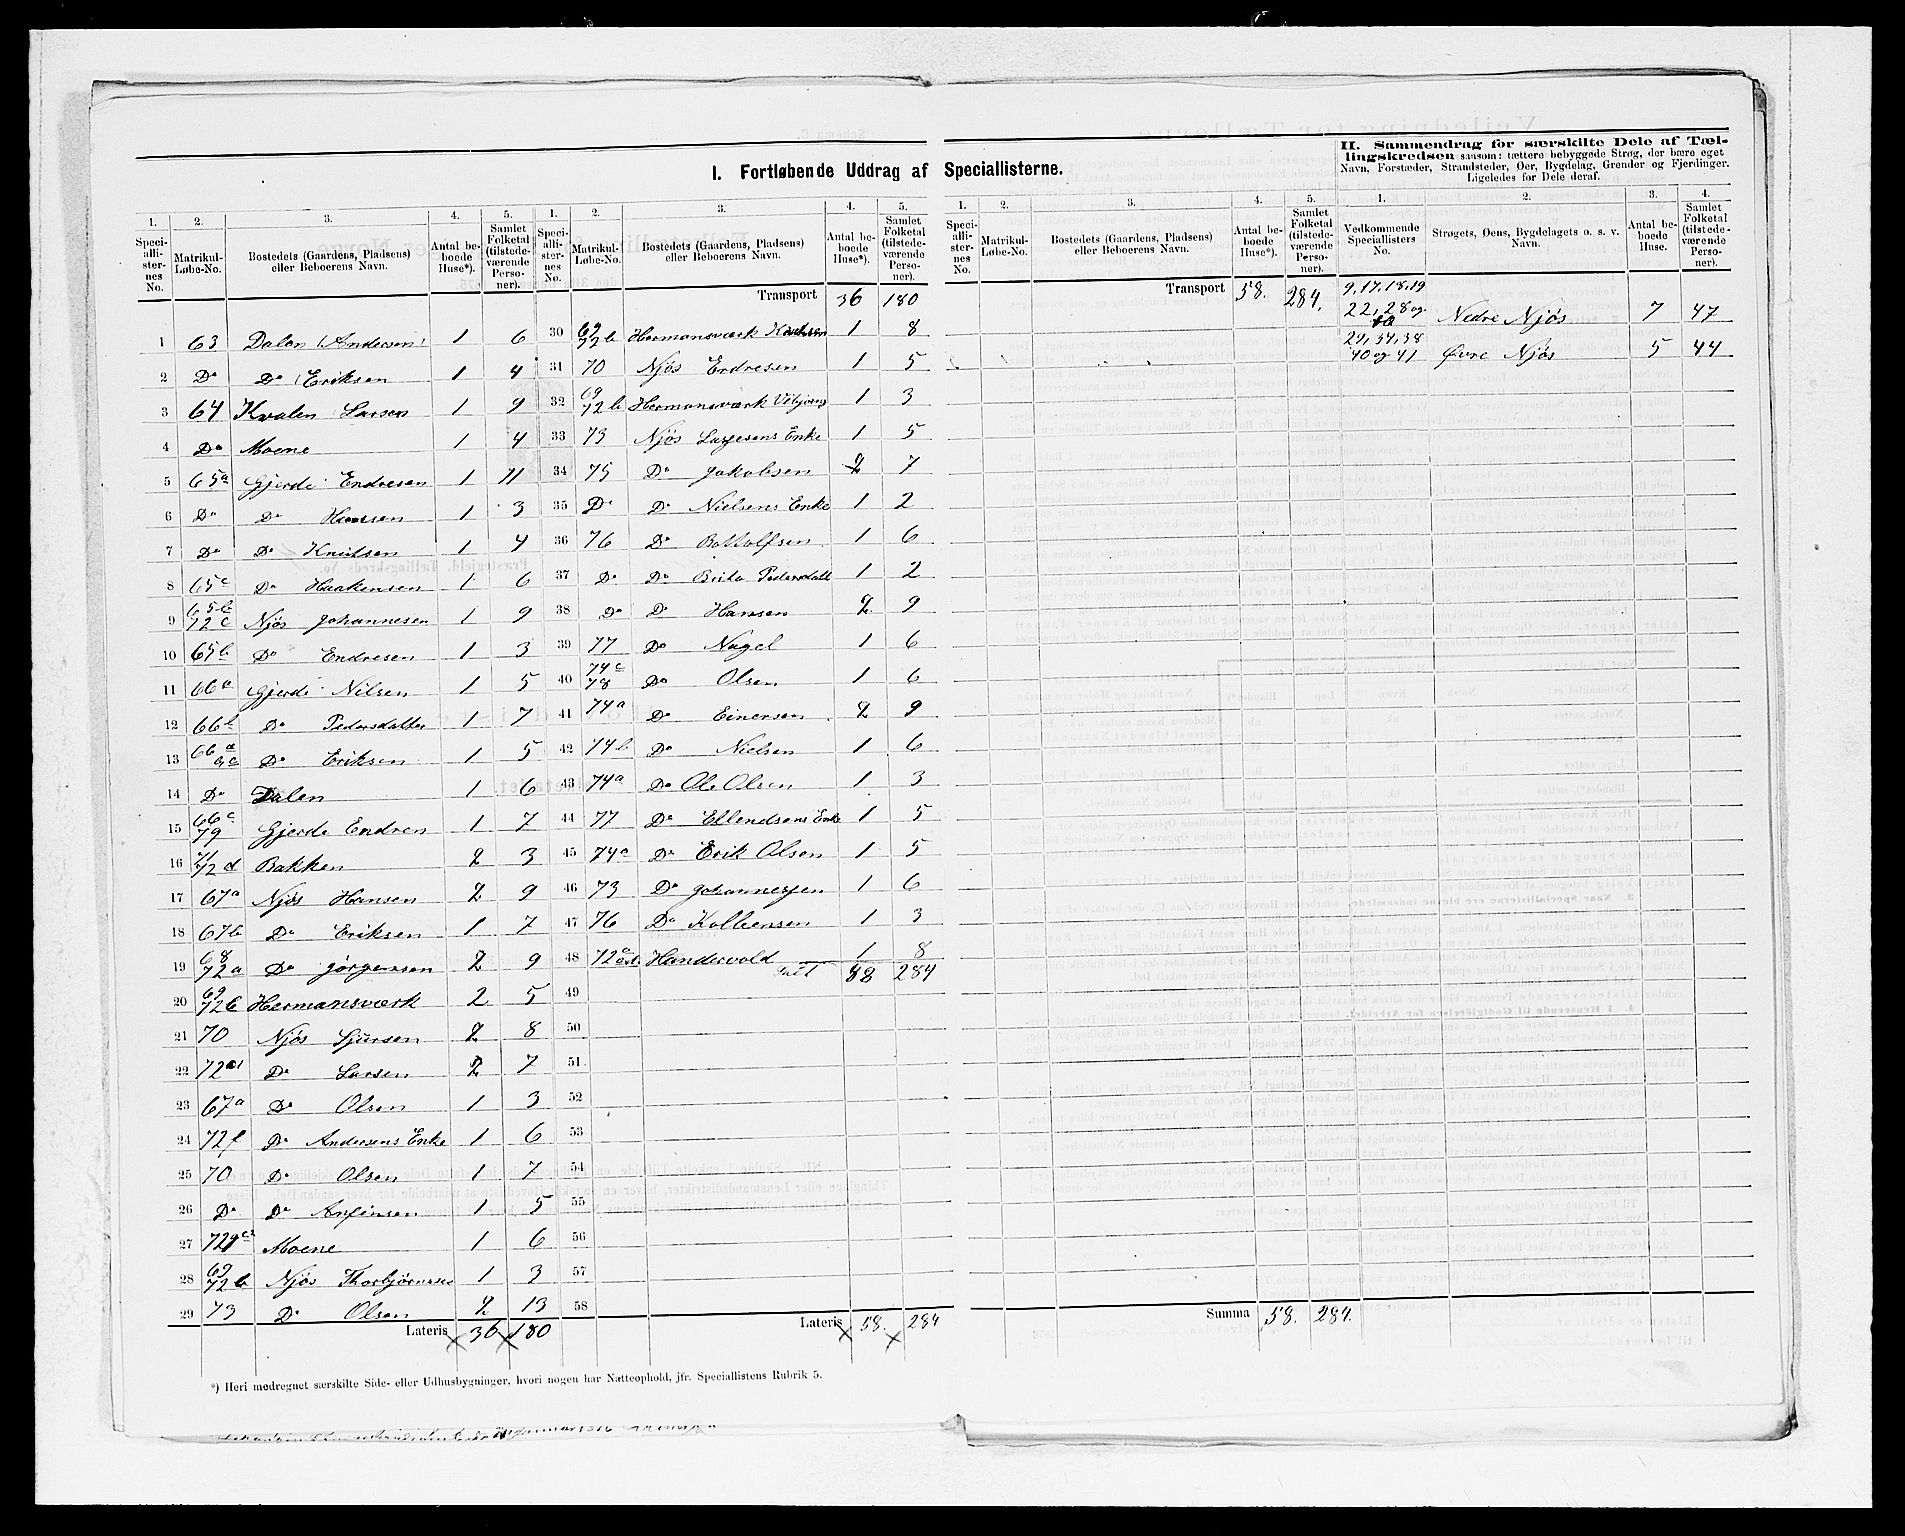 I. Fortløbende Uddrag af Speciallisterne.
II. Sammendrag for særskilte Dele af Tæl-
lingskredsen saasom: tættere bebyggede Strøg, der bære eget
Navn, Forstæder, Strandsteder, Øer, Bygdelag, Grender og Fjerdinger.
Ligeledes for Dele deraf.
1. 2. 3. 4. 5. 1. 2. 3. 4. 5.
Speciallisternes No. Matrikul-Løbe-No. Bostedets (Gaardens, Pladsens) eller Beboerens Navn. Antal beboede Huse*). Samlet Folketal (tilstedeværende Personer).
Transport 36 180
1 63 Dalen (Andersen) 1 6
2 Do Do (Eriksen 1 4
3 64 Kvalen Larsen 1 9
4 Do Moene 1 4
5 65a Gjerde Endresen 1 11
6 Do Do Hansen 1 3
7 Do Do Knutsen 1 4
8 65c Do Haakensen 1 6
9 65b 72c Njøs Johannesen 1 9
10 65b Do Endresen 1 3
11 66a Gjerde Nilsen 1 5
12 66b Do Pedersdatter 1 7
13 66a Do Eriksen 1 5
14 Do Dalen 1 6
15 66c 79 Gjerde Endren 1 7
16 71 72d Bakken 2 3
17 67a Njøs Hansen 2 9
18 67b Do Eriksen 1 7
19 68 72a Do Jørgensen 2 9
20 69 72b Hermansværk 2 5
21 70 Njøs Sjursen 2 8
22 72 Do Larsen 2 7
23 67a Do Olsen 1 3
24 72f Do Andersens Enke 1 6
25 70 Do Olsen 1 7
26 Do Do Anfinsen 1 5
27 72 Moene 1 6
28 69 72b Njøs Thorbjørnsen 1 3
29 73 Do Olsen 2 13
Lateris 36 180
30 69 72b Hermansværk Knudsen 1 8
31 70 Njøs Endresen 1 5
32 69 72b Hermansværk 1 3
33 73 Njøs Lassesens Enke 1 5
34 75 Do Jakobsen 2 7
35 Do Do Nielsens Enke 1 2
36 76 Do Bottolfsen 1 6
37 Do Do Brita Pedersdatt 1 2
38 Do Do Hansen 2 9
39 77 Do Nagel 1 6
40 74c 78 Do Olsen 1 6
41 74a Do Einersen 2 9
42 74b Do Nielsen 1 6
43 74a Do Ole Olsen 1 3
44 77 Do Ellendsens Enke 1 5
45 74a Do Erik Olsen 1 5
46 73 Do Johannesen 1 6
47 76 Do Kolbensen 1 3
48 72 Handevold 1 8
58 284
49
50
51
52
53
54
55
56
57
58
Lateris 58. 284
1. 2. 3. 4. 5.
Speciallisternes No. Matrikul-Løbe-No. Bostedets (Gaardens, Pladsens) eller Beboerens Navn. Antal beboede Huse*). Samlet Folketal (tilstedeværende Personer).
Transport 58. 284.
Summa 58. 284.
1. 2. 3. 4.
Vedkommende Speciallisters No. Strøgets, Øens, Bygdelagets o. s. v. Navn. Antal beboede Huse. Samlet Folketal (tilstedeværende Personer).
9, 17, 18, 19
22, 28 og Nedre Njøs 7 47
29, 37, 38
40 og 41 Øvre Njøs 5 44
*) Heri medregnet særskilte Side- eller Udhusbygninger, hvori nogen har Natteophold, jfr. Speciallistens Rubrik 5.